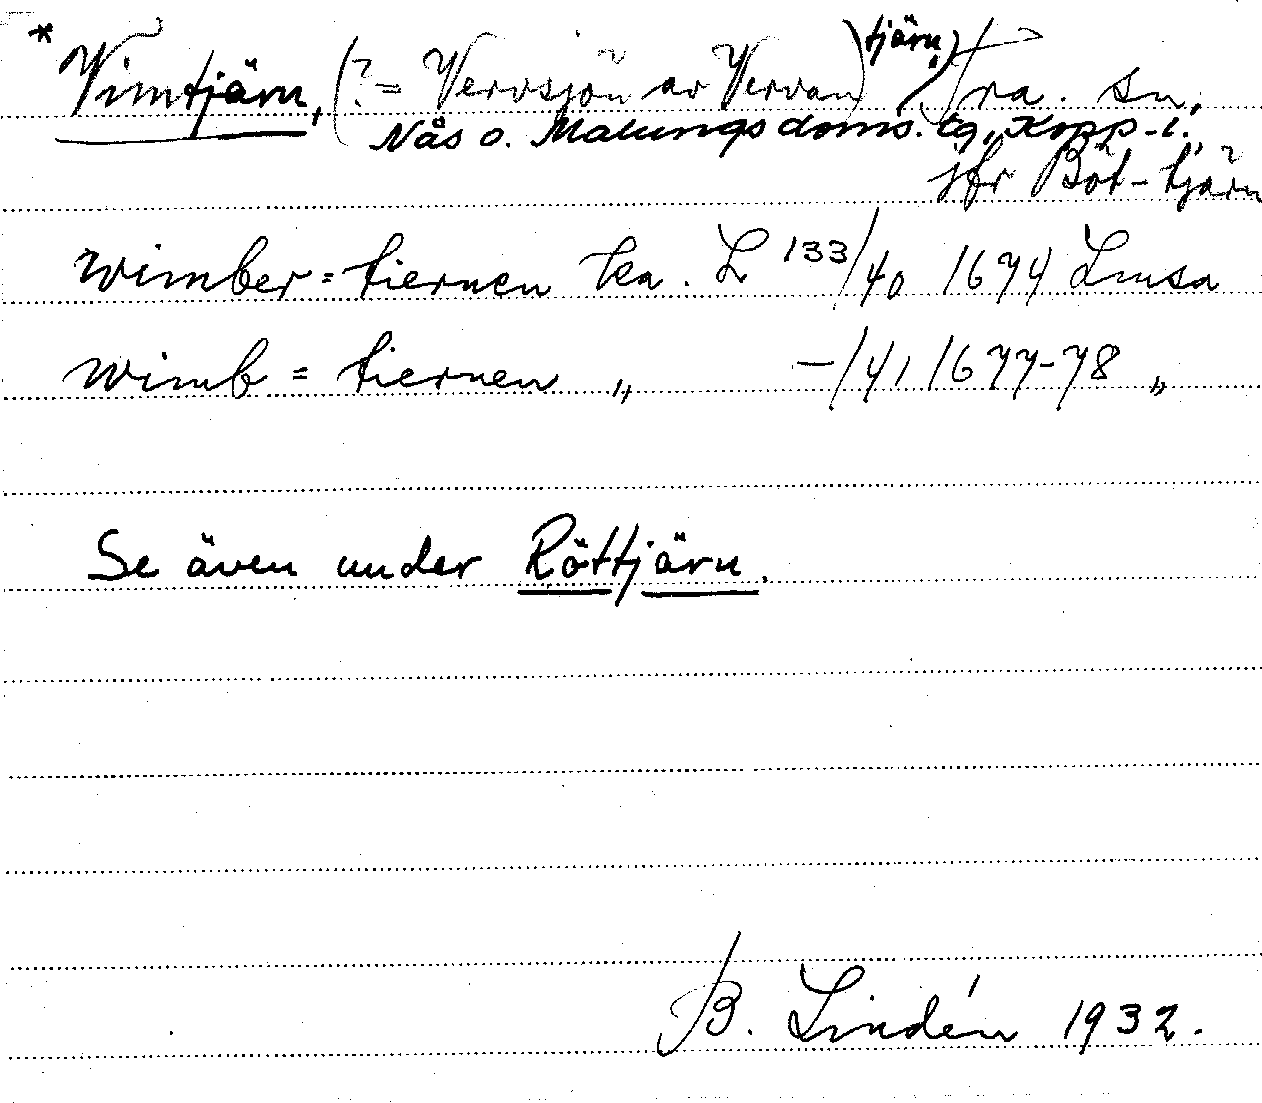 * Vimtjärn, (? = Vervsjön av Vervan) tjärn, Jrna. sn,
Nås o. Malungs doms. tg, Kopp-l.,
jfr Böt-tjärn
wimber=tiernen kea. L 133/40 1674 Lmsa
wimb = tiernen „ —/41 1677-78 „
Se även under Röttjärn.
B. Lindén 1932.